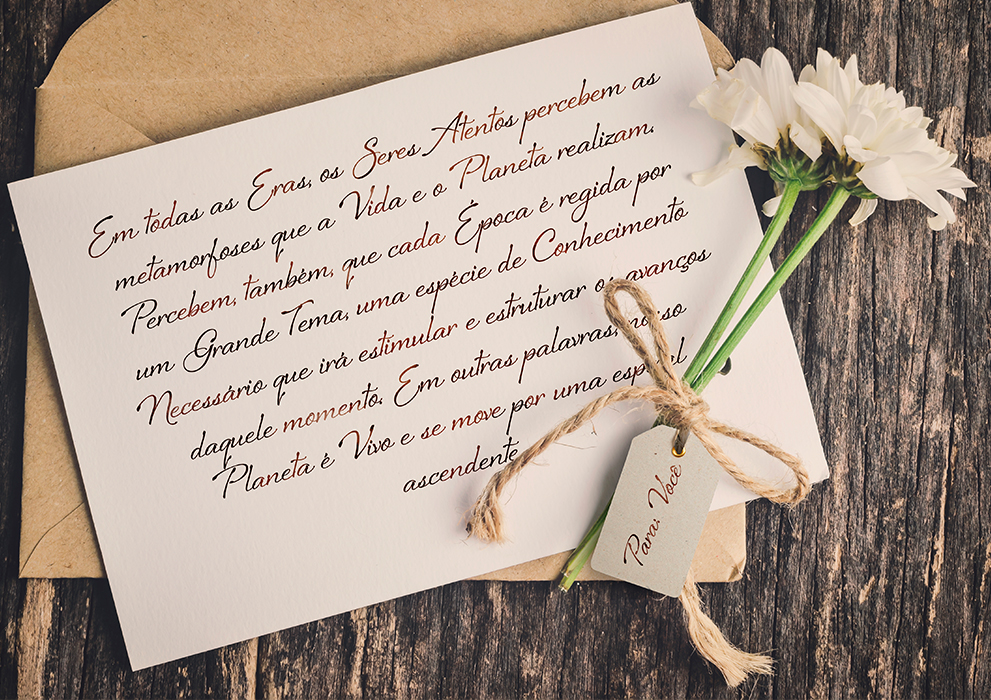 Em todas as Eras, os Seres Atentos percebem as
metamorfoses que a Vida e o Planeta realizam.
Percebem, também, que cada Época é regida por
um Grande Tema, uma espécie de Conhecimento
Necessário que irá estimular e estruturar os avanços
daquele momento. Em outras palavras, nosso
Planeta é Vivo e se move por uma espiral
ascendente
Para: Você